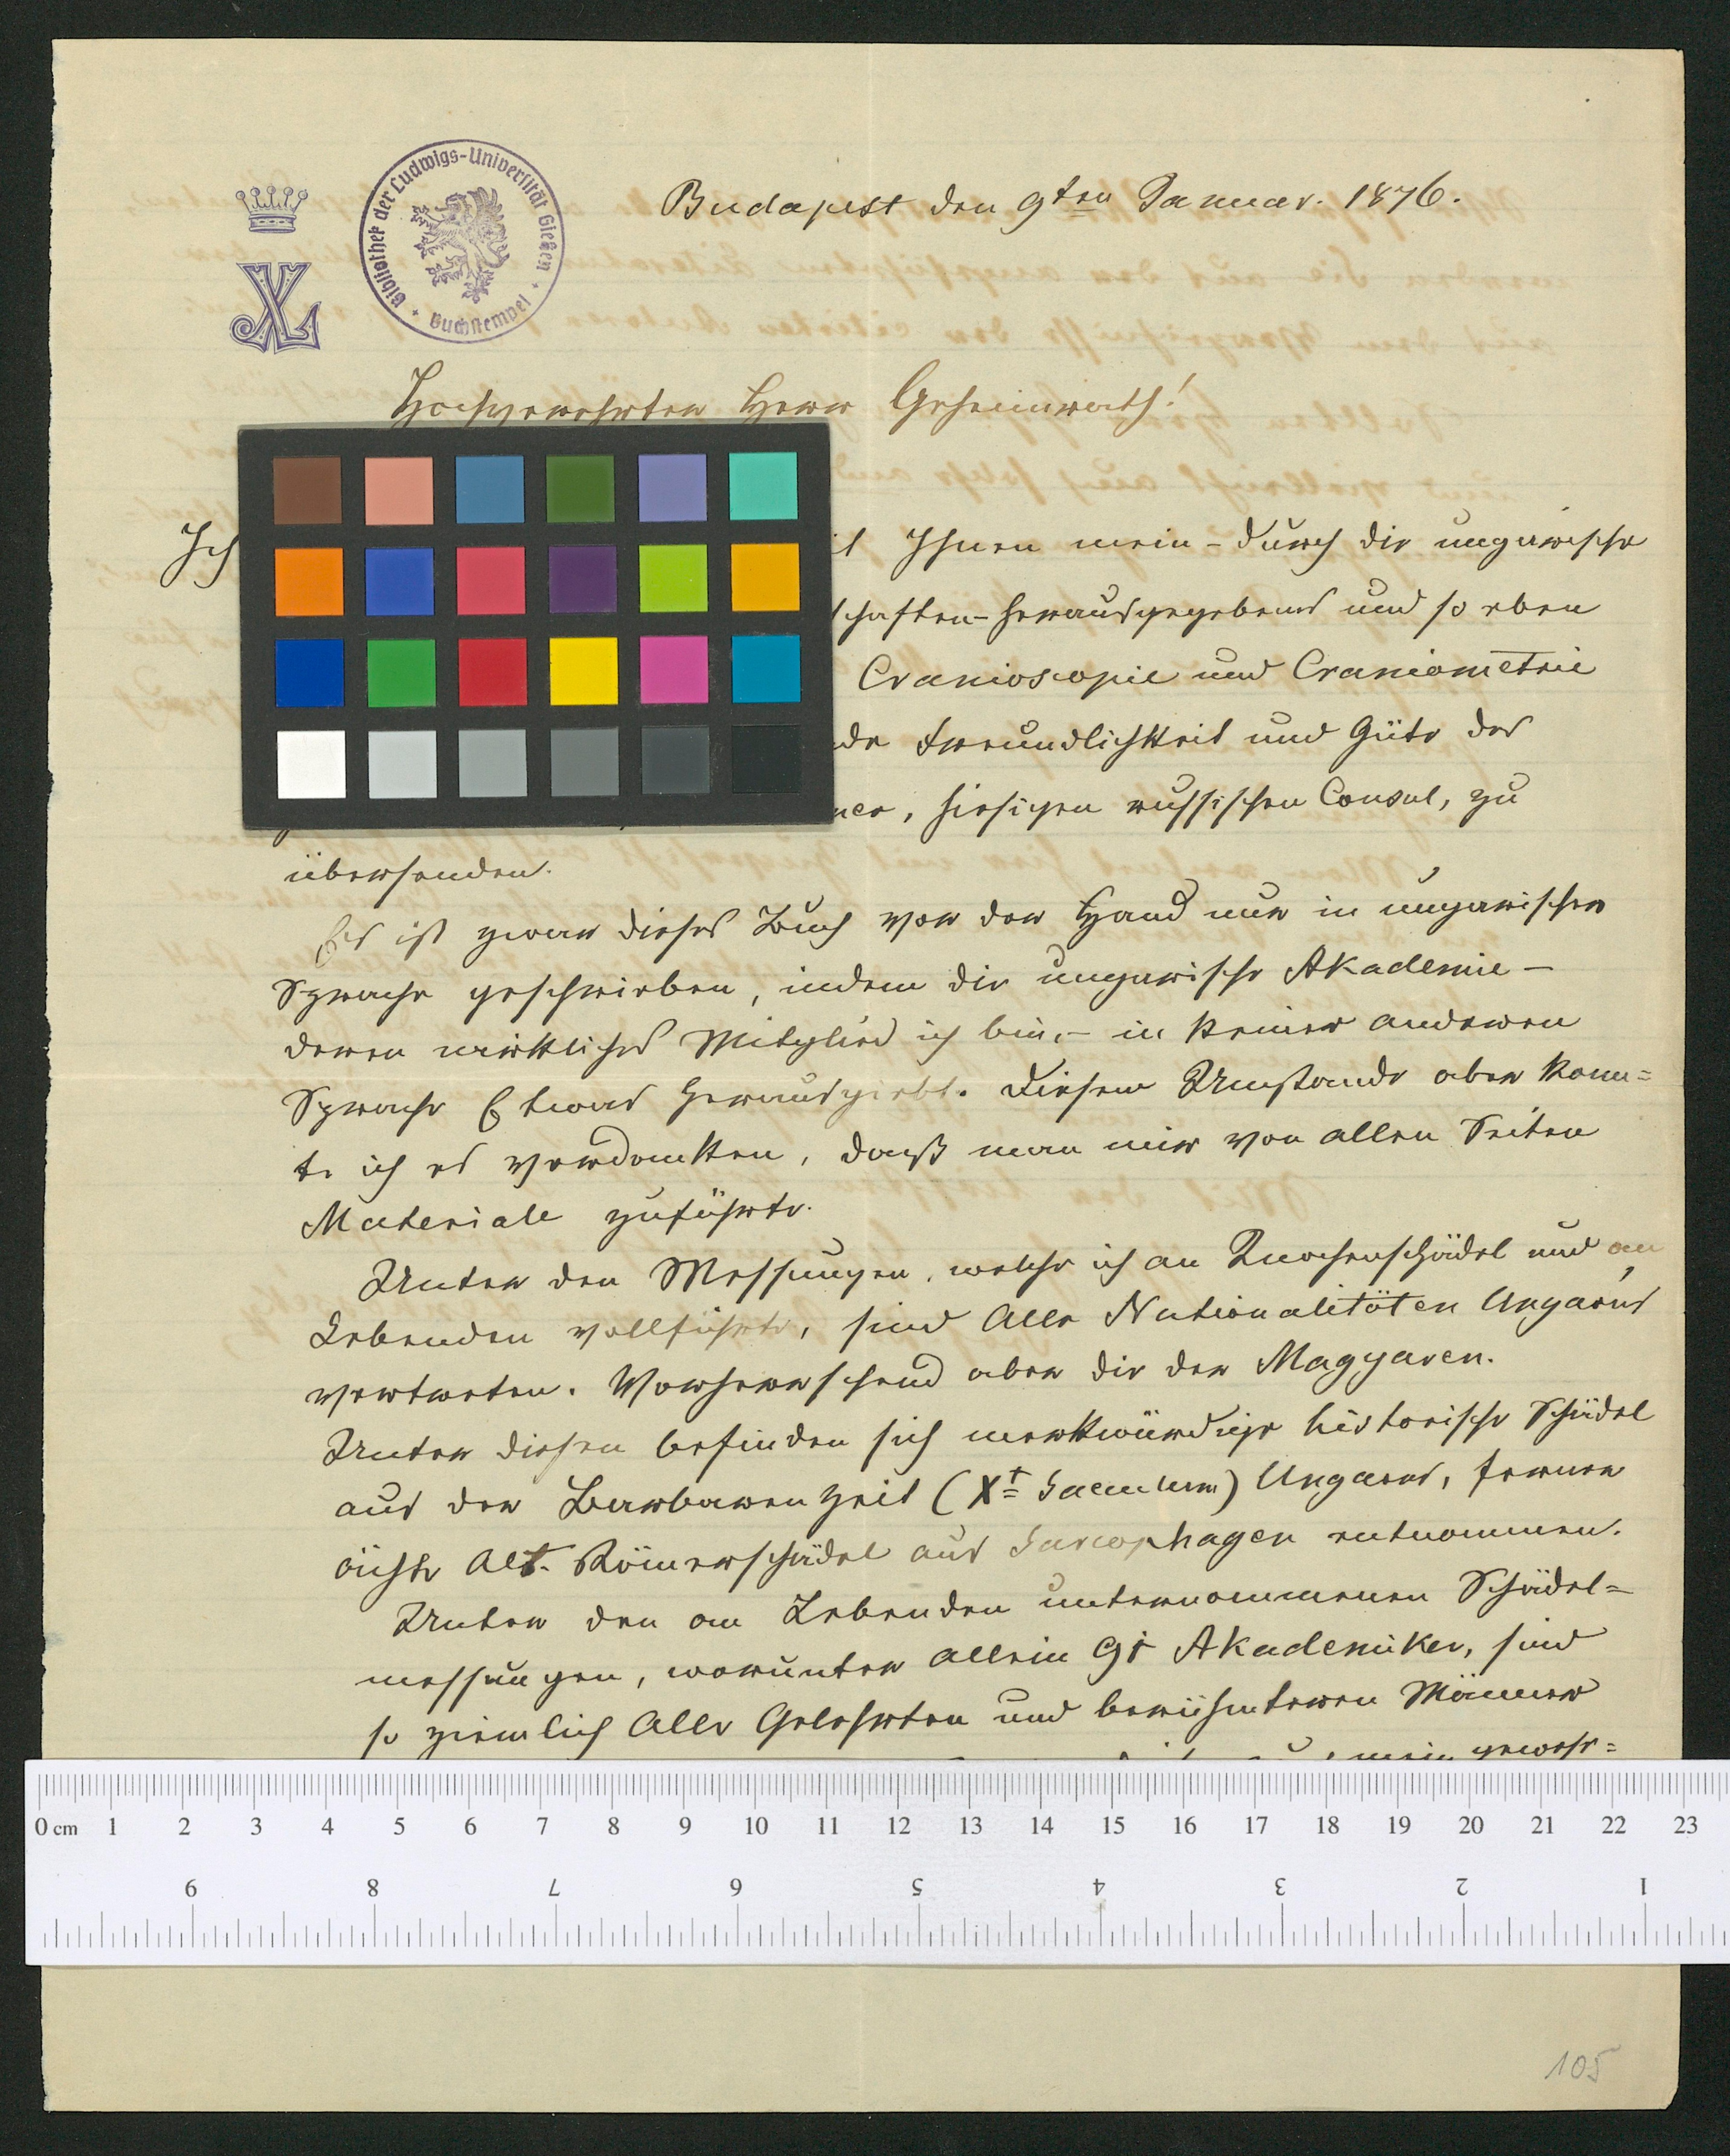 Bibliothek der Ludwigs-Universität Gießen
Buchstempel
Budapest den 9ten Januar. 1876.
Hochverehrter Herr Geheimrath!
Ich
Ihnen mein - durch die ungarische
schaften - herausgegebenes und so eben
Cranioscopie und Craniometrie
Freundlichkeit und Güte des
, hiesigen russischen Consul, zu
übersenden.
Es ist zwar dieses Buch vor der Hand nur in ungarischer
Sprache geschrieben, indem die ungarische Akademie -
deren wirkliches Mitglied ich bin, - in keiner anderen
Sprache Etwas herausgiebt. Diesem Umstande aber konn=
te ich es verdanken, daß man mir von allen Seiten
Materiale zuführte.
Unter den Messungen, welche ich an Knochenschädel und an
Lebenden vollführte, sind Alle Nationalitäten Ungarns
vertreten. Vorherrschend aber die der Magyaren.
Unter diesen befinden sich merkwürdige historische Schädel
aus der Barbarenzeit (Xt Saeculum) Ungarns, ferner
ächte Alt-Römerschädel aus Sarcophagen entnommen.
Unter den an Lebenden unternommenen Schädel=
messungen, worunter allein 91 Akademiker, sind
so ziemlich Alle Gelehrten und berühmteren Männer
0 cm 1 2 3 4 5 6 7 8 9 10 11 12 13 14 15 16 17 18 19 20 21 22 23
9 8 7 6 5 4 3 2 1
105